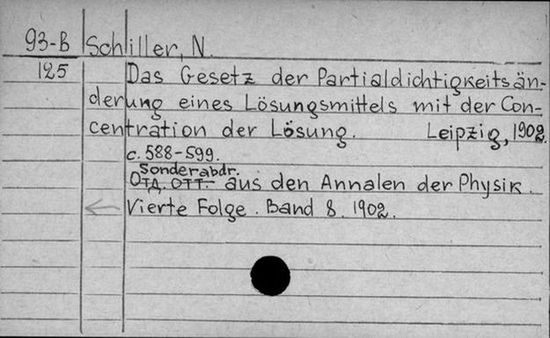 93-B Schiller, N.
125 Das Gesetz der Partialdichtigkeitsän-
derung eines Lösungsmittels mit der Con-
centration der Lösung. Leipzig, 1902.
c. 588-599.
Sonderabdr.
Отд. отт. aus den Annalen der Physik.
Vierte Folge. Band 8. 1902.